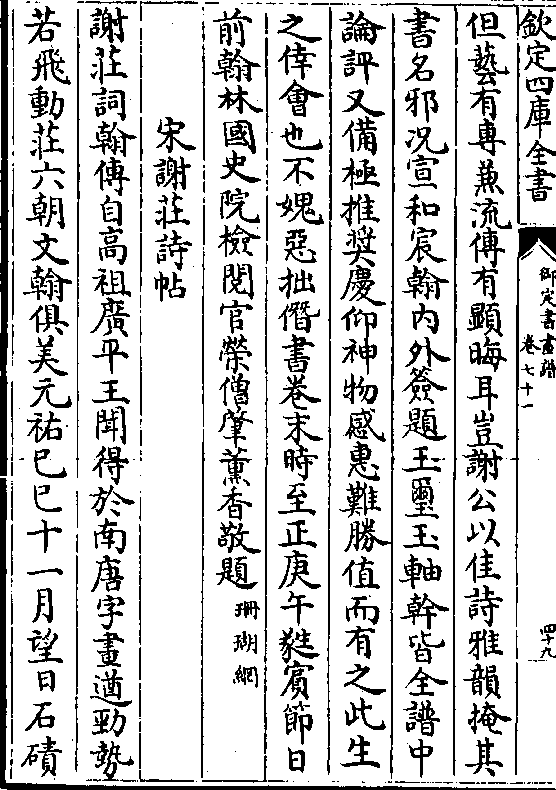 欽定四庫全書
御定書畫譜
卷七十一
四十九
但藝有專兼流傳有顯晦耳豈謝公以佳詩雅韻掩其
書名邪况宣和宸翰内外簽題玉璽玉軸幹皆全譜中
論評又備極推奨慶仰神物感惠難勝值而有之此生
之倖會也不媿惡拙僭書卷末時至正庚午蕤賓節日
前翰林國史院檢閱官榮僧肇薰香敬題珊瑚網
宋謝莊詩帖
謝莊詞翰傳自高祖廣平王聞得於南唐字畫遒勁勢
若飛動莊六朝文翰俱美元祐已巳十一月望日石磧